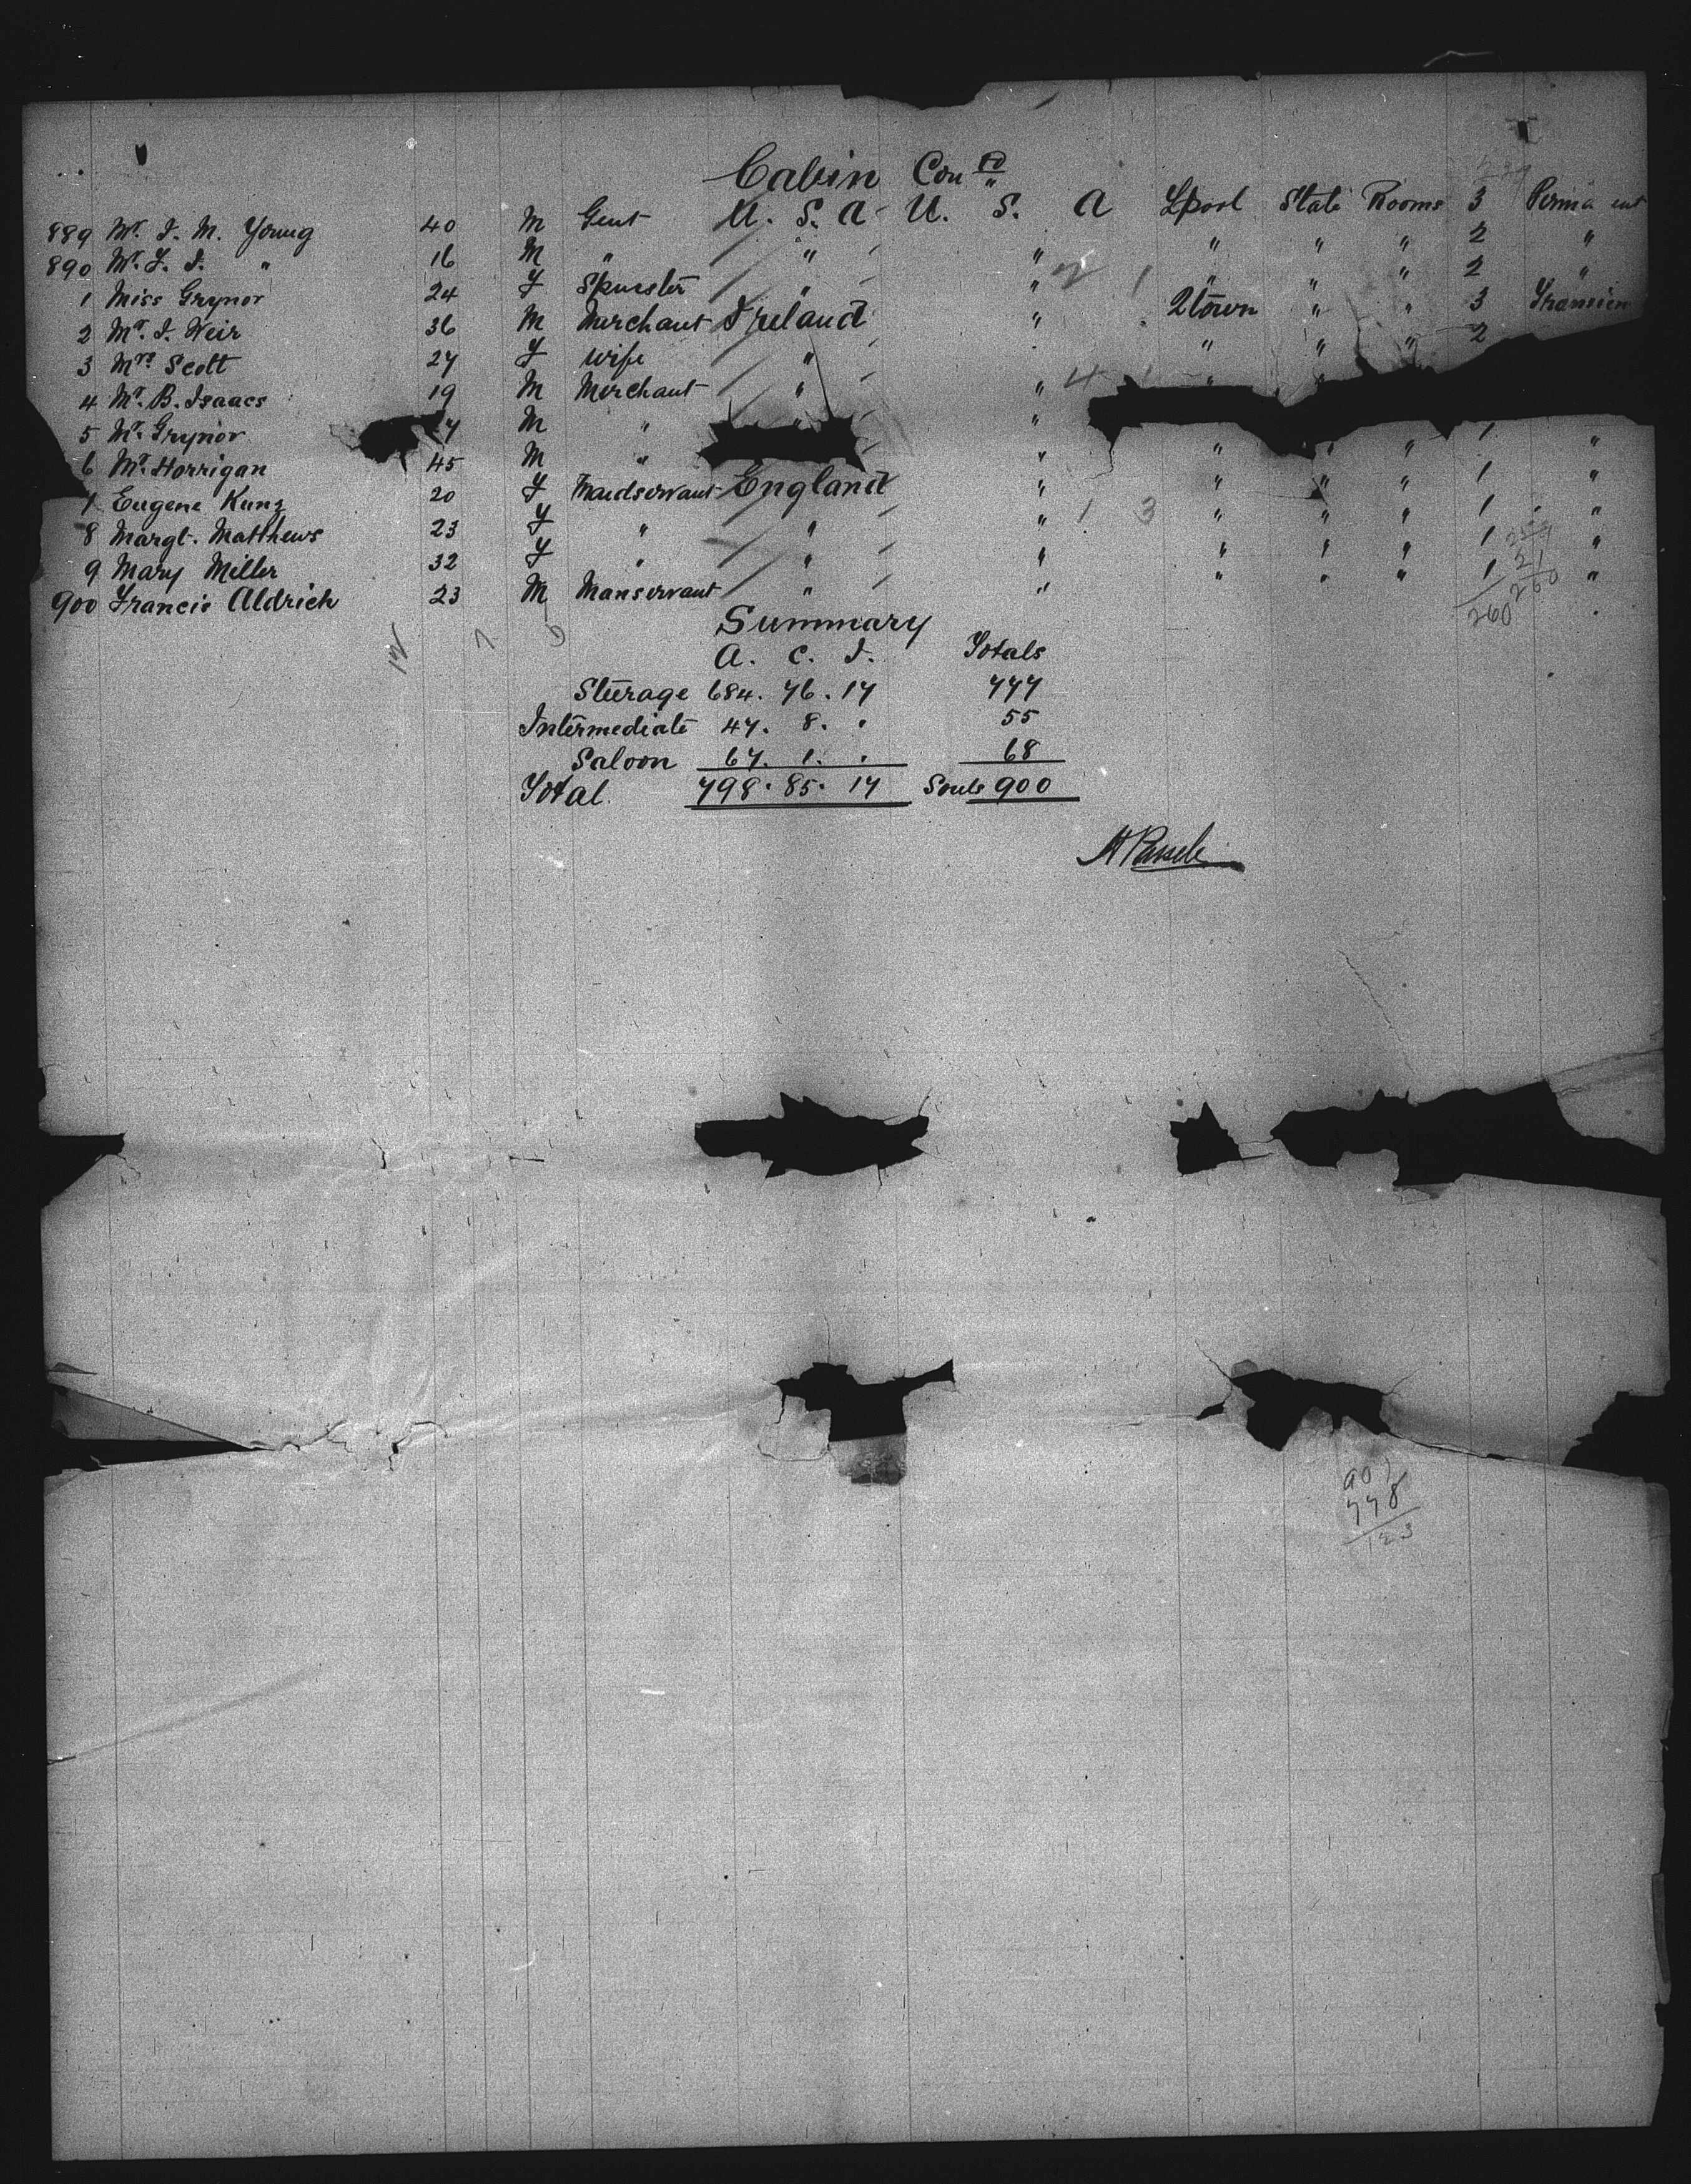 Cabin Con td
889 Mr. J. M. Young 40 M Gent U. S. A U. S. A Lpool State Rooms 3 Perma ent
890 Mr. F. J. " 16 M " " " " " " 2 "
1 Miss Grynor 24 F Spinster " " " " " 2 "
2 Mr. J. Weir 36 M Merchant Ireland " Qtown " " 3 Transien
3 Mrs. Scott 27 F Wife " " " " 2
4 Mr. B. Isaacs 19 M Merchant " " "
5 Mr. Grynor 7 M " " 1
6 Mr. Horrigan 45 M " " " " " 1 "
7 Eugene Kunz 20 F Maidservant England " " " " 1 "
8 Margt. Matthews 23 F " " " " " " 1 "
9 Mary Miller 32 F " " " " " " 1 "
900 Francis Aldrich 23 M Manservant " " " " " 1 "
260 260
Summary
A. C. I. Totals
Steerage 684. 76. 17 777
Intermediate 47. 8. . 55
Saloon 67. 1. . 68
Total 798. 85. 17 Souls 900
901
778
123